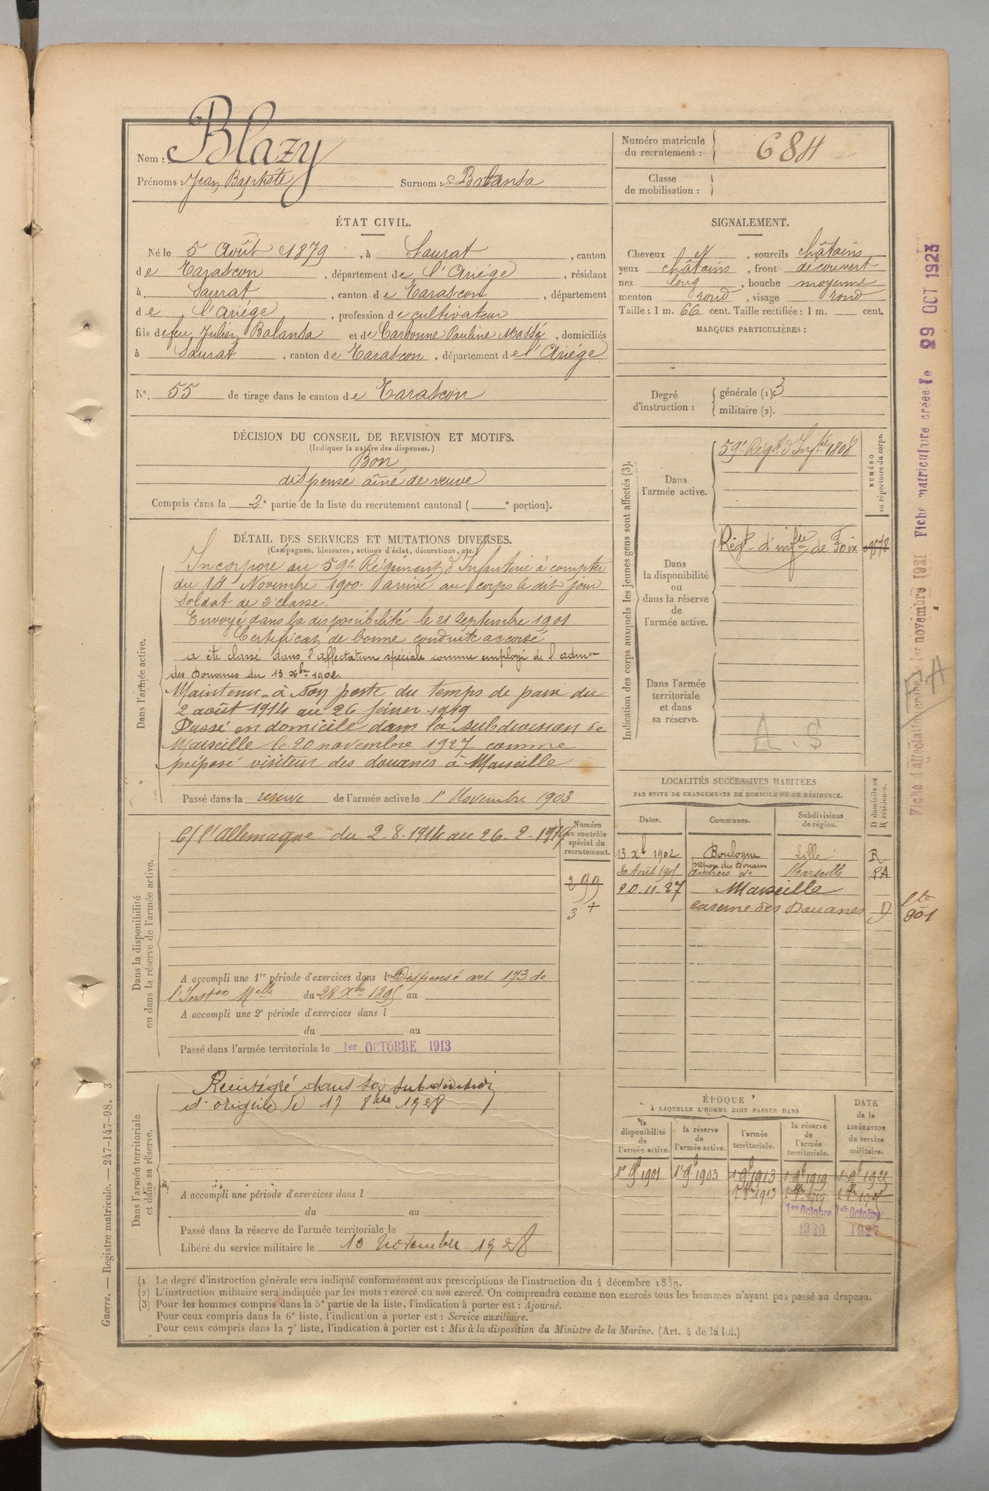 Nom : Blazy
Prénoms : Jean Baptiste Surnom : Balansa
Numéro matricule du recrutement : 684
Classe de mobilisation :
ÉTAT CIVIL.
Né le 5 Août 1879, à Saurat, canton
de Tarascon, département de l'Ariége, résidant
à Saurat, canton de Tarascon, département
de l'Ariége, profession de cultivateur
fils de feu Julien Balansa et de Carbonne Pauline Massé, domiciliés
à Saurat, canton de Tarascon, département de l'Ariége
N° 55 de tirage dans le canton de Tarascon
SIGNALEMENT.
Cheveux et, sourcils châtains
yeux châtains, front découvert
nez long, bouche moyenne
menton rond, visage rond
Taille : 1 m. 66 cent. Taille rectifiée : 1 m. cent.
MARQUES PARTICULIÈRES :
Degré d'instruction : générale (1). 3
militaire (2).
DÉCISION DU CONSEIL DE REVISION ET MOTIFS.
(Indiquer la nature des dispenses.)
Bon
dispense aîné de veuve
Compris dans la 2e partie de la liste du recrutement cantonal ( e portion).
DÉTAIL DES SERVICES ET MUTATIONS DIVERSES.
(Campagnes, blessures, actions d'éclat, décorations, etc.)
Dans l'armée active.
Incorporé au 59e Régiment d'Infanterie à compter
du 14 Novembre 1900 arrivé au corps le dit jour
soldat de 2e classe.
Envoyé dans la disponibilité le 21 septembre 1901
Certificat de bonne conduite accordé
a été classé dans l'affectation spéciale comme employé de l'admon
des Douanes du 13 Xbre 1902.
Maintenu à son poste du temps de paix du
2 août 1914 au 26 février 1919
Passé en domicile dans la subdivision de
Marseille le 20 novembre 1927 comme
préposé visiteur des douanes à Marseille
Passé dans la réserve de l'armée active le 1er Novembre 1903
Indication des corps auxquels les jeunes gens sont affectés (3).
NUMÉRO au répertoire du corps.
Dans l'armée active.
59e Régt d'Infrie 1808
Dans la disponibilité ou dans la réserve de l'armée active.
Régt d'infrie de Foix
Dans l'armée territoriale et dans sa réserve.
A.S
Dans la disponibilité ou dans la réserve de l'armée active.
C/ l'Allemagne du 2.8.1914 au 26.2.1919
Numéro au contrôle spécial du recrutement.
299
3
A accompli une 1re période d'exercices dans l Dispensé art 173 de
l'Inston Mlle du 28 Xbre 1895 au
A accompli une 2e période d'exercices dans l
du au
Passé dans l'armée territoriale le 1er OCTOBRE 1913
LOCALITÉS SUCCESSIVES HABITÉES
PAR SUITE DE CHANGEMENTS DE DOMICILE OU DE RÉSIDENCE.
Dates. Communes. Subdivisions de région. D domicile ou R résidence.
13 Xbre 1902 Boulogne Lille R
Marseille RA
20.11.27 Marseille
caserne des Douanes D
Dans l'armée territoriale et dans sa réserve.
Réintégré dans sa subdivision
d'origine le 17 8bre 1928
A accompli une période d'exercices dans l
du au
Passé dans la réserve de l'armée territoriale le
Libéré du service militaire le 10 novembre 1928
ÉPOQUE
À LAQUELLE L'HOMME DOIT PASSER DANS
la disponibilité de l'armée active. la réserve de l'armée active. l'armée territoriale. la réserve de l'armée territoriale. DATE de la LIBÉRATION du service militaire.
1er 9bre 1901 1er 9bre 1903 1er 9bre 1913 1er 9bre 1919
1er Octobre 1er Octobre
Fiche matriculaire créée le 29 OCT 1923
Guerre. — Registre matricule. — 247-147-98. 3
(1) Le degré d'instruction générale sera indiqué conformément aux prescriptions de l'instruction du 4 décembre 1889.
(2) L'instruction militaire sera indiquée par les mots : exercé ou non exercé. On comprendra comme non exercés tous les hommes n'ayant pas passé au drapeau.
(3) Pour les hommes compris dans la 5e partie de la liste, l'indication à porter est : Ajourné.
Pour ceux compris dans la 6e liste, l'indication à porter est : Service auxiliaire.
Pour ceux compris dans la 7e liste, l'indication à porter est : Mis à la disposition du Ministre de la Marine. (Art. 4 de la loi.)